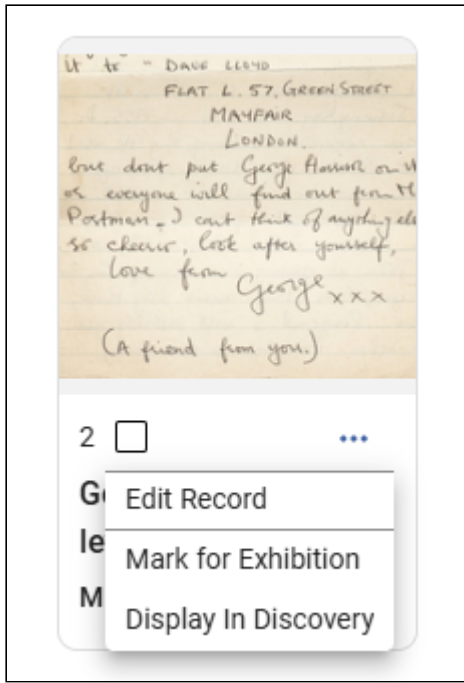 it" to - DAVE LLOYD
FLAT L. 57, GREEN STREET
MAYFAIR
LONDON.
but dont put George Harrison on it
or everyone will find out from th
Postman. I cant think of anything els
so cheerio, look after yourself,
love from
George xxx
(A friend from you.)
2
...
Ge
le
M
Edit Record
Mark for Exhibition
Display In Discovery